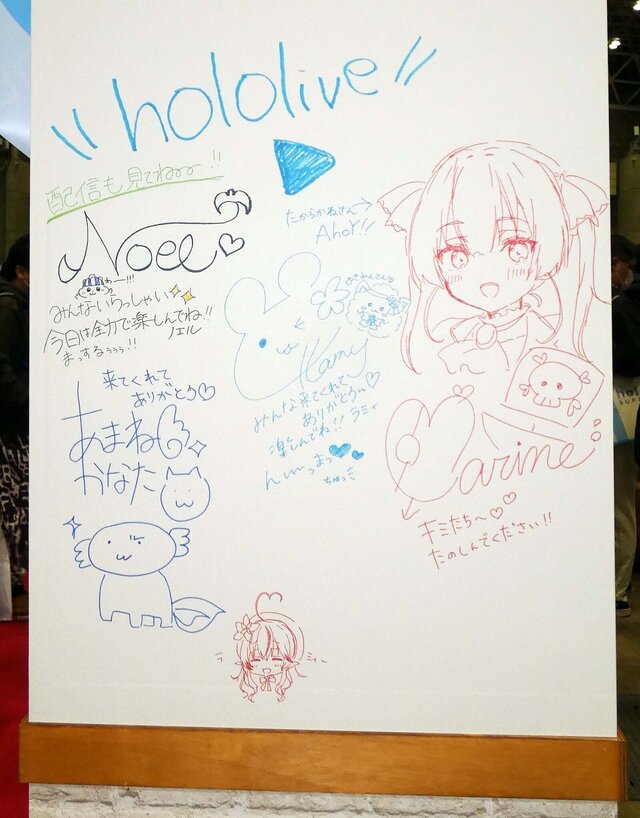 hololive
配信も見てねーー!!
Noel
みんないらっしゃい
今日は全力で楽しんでね!!
まっするぅぅぅ!! ノエル
来てくれて
ありがとう
あまね
かなた
たからかねさん→
Ahoy!!
みんな来てくれて
ありがとう〜
楽しんでね!! ラミィ
んーーまっ
ちゅっ
Marine
キミたち〜
たのしんでください!!
ラ ミィ〜